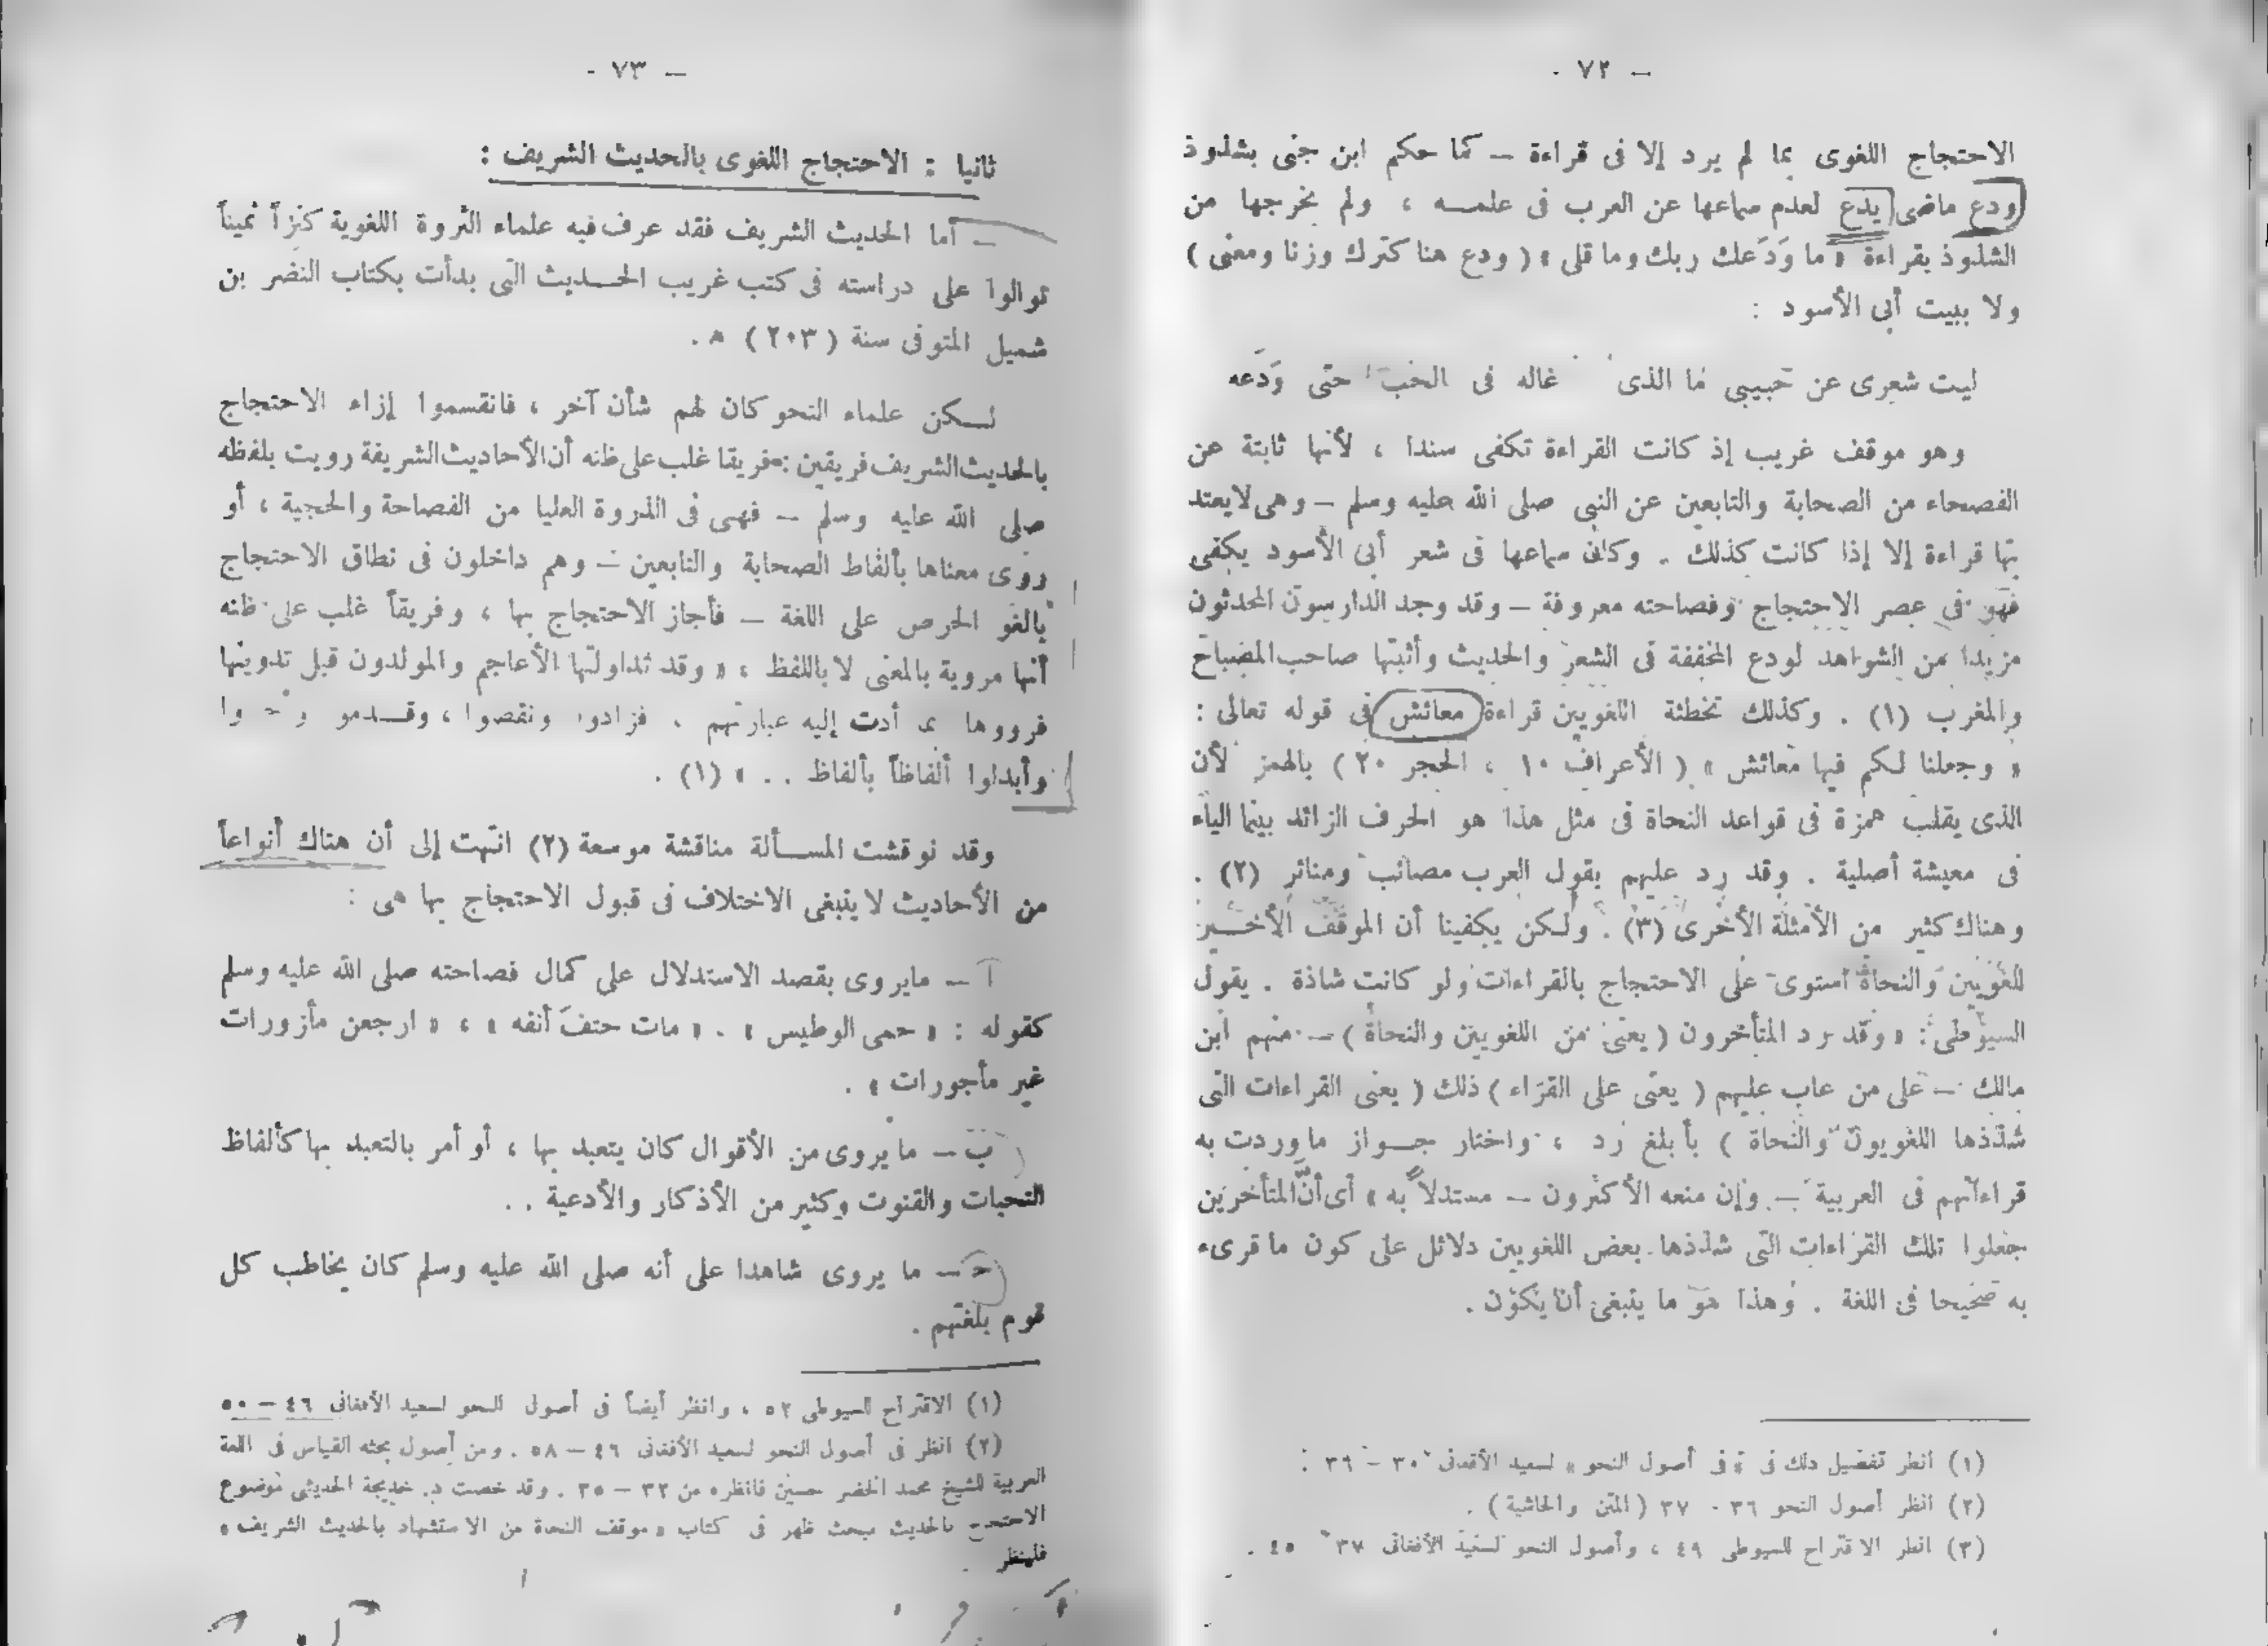 — ٧٢ -
الاحتجاج اللغوى بما لم يرد إلا فى قراءة — كما حكم ابن جنى بشذوذ
ودع ماضى يدع لعدم سماعها عن العرب فى علمه ، ولم يخرجها من
الشذوذ بقراءة « ما وَدَعك ربك وما قلى » ( ودع هنا كترك وزنا ومعنى )
ولا ببيت أبى الأسود :
ليت شعرى عن حبيبى ما الذى غاله فى الحب حتى وَدَعه
وهو موقف غريب إذ كانت القراءة تكفى سندا ، لأنها ثابتة عن
الفصحاء من الصحابة والتابعين عن النبى صلى الله عليه وسلم — وهى لايعتد
بها قراءة إلا إذا كانت كذلك . وكان سماعها فى شعر أبى الأسود يكفى
فهو فى عصر الاحتجاج وفصاحته معروفة — وقد وجد الدارسون المحدثون
مزيدا من الشواهد لودع المخففة فى الشعر والحديث وأثبتها صاحب المصباح
والمغرب (١) . وكذلك تخطئة اللغويين قراءة معائش فى قوله تعالى :
« وجعلنا لكم فيها معائش » ( الأعراف ١٠ ، الحجر ٢٠ ) بالهمز لأن
الذى يقلب همزة فى قواعد النحاة فى مثل هذا هو الحرف الزائد بينما الياء
فى معيشة أصلية . وقد رد عليهم بقول العرب مصائب ومنائر (٢) .
وهناك كثير من الأمثلة الأخرى (٣) . ولكن يكفينا أن الموقف الأخير
للغويين والنحاة استوى على الاحتجاج بالقراءات ولو كانت شاذة . يقول
السيوطى : « وقد رد المتأخرون ( يعنى من اللغويين والنحاة ) — منهم ابن
مالك — على من عاب عليهم ( يعنى على القرّاء ) ذلك ( يعنى القراءات التى
شذذها اللغويون والنحاة ) بأبلغ رد ، واختار جواز ما وردت به
قراءاتهم فى العربية — وإن منعه الأكثرون — مستدلاً به » أى أنّ المتأخرين
جعلوا تلك القراءات التى شذذها بعض اللغويين دلائل على كون ما قرىء
به صحيحا فى اللغة . وهذا هو ما ينبغى أن يكون .
(١) انظر تفصيل ذلك فى « فى أصول النحو » لسعيد الأفغانى ٣٠ — ٣٦ :
(٢) انظر أصول النحو ٣٦ - ٣٧ ( المتن والحاشية ) .
(٣) انظر الاقتراح للسيوطى ٤٩ ، وأصول النحو لسعيد الأفغانى ٣٧ ٤٥ .
— ٧٣ -
ثانيا : الاحتجاج اللغوى بالحديث الشريف :
— أما الحديث الشريف فقد عرف فيه علماء الثروة اللغوية كنزاً ثميناً
توالوا على دراسته فى كتب غريب الحديث التى بدأت بكتاب النضر بن
شميل المتوفى سنة ( ٢٠٣ ) ه .
لكن علماء النحو كان لهم شأن آخر ، فانقسموا إزاء الاحتجاج
بالحديث الشريف فريقين : فريقا غلب على ظنه أن الأحاديث الشريفة رويت بلفظه
صلى الله عليه وسلم — فهى فى الذروة العليا من الفصاحة والحجية ، أو
روى معناها بألفاظ الصحابة والتابعين — وهم داخلون فى نطاق الاحتجاج
بالغو الحرص على اللغة — فأجاز الاحتجاج بها ، وفريقاً غلب على ظنه
أنها مروية بالمعنى لا باللفظ ، « وقد تداولتها الأعاجم والمولدون قبل تدوينها
فرووها بما أدت إليه عبارتهم . فزادوا ونقصوا ، وقدمو وا
وأبدلوا ألفاظاً بألفاظ . . » (١) .
وقد نوقشت المسألة مناقشة موسعة (٢) انتهت إلى أن هناك أنواعاً
من الأحاديث لا ينبغى الاختلاف فى قبول الاحتجاج بها هى :
أ — مايروى بقصد الاستدلال على كمال فصاحته صلى الله عليه وسلم
كقوله : « حمى الوطيس » . « مات حتفَ أنفه » ، « ارجعن مأزورات
غير مأجورات » .
ب — ما يروى من الأقوال كان يتعبد بها ، أو أمر بالتعبد بها كألفاظ
التحيات والقنوت وكثير من الأذكار والأدعية . .
ح — ما يروى شاهدا على أنه صلى الله عليه وسلم كان يخاطب كل
قوم بلغتهم .
(١) الاقتراح للسيوطى ٥٢ ، وانظر أيضاً فى أصول النحو لسعيد الأفغانى ٤٦ — ٥٠
(٢) انظر فى أصول النحو لسعيد الأفغانى ٤٦ — ٥٨ . ومن أصول بحثه القياس فى اللغة
العربية للشيخ محمد الخضر حسين فانظره من ٣٢ — ٣٥ . وقد خصت د. خديجة الحديثى موضوع
الاحتجاج بالحديث ببحث ظهر فى كتاب « موقف النحاة من الاستشهاد بالحديث الشريف »
فلينظر .